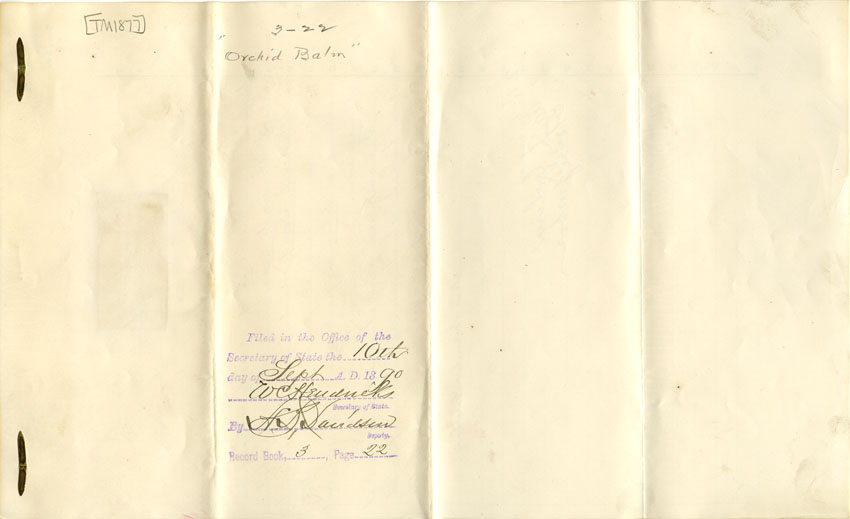 [TM1877]
3-22
"Orchid Balm"
Filed in the Office of the
Secretary of State the 10th
day of Sept A. D. 1890
W C Hendricks
Secretary of State.
By
Deputy.
Record Book, 3, Page 22